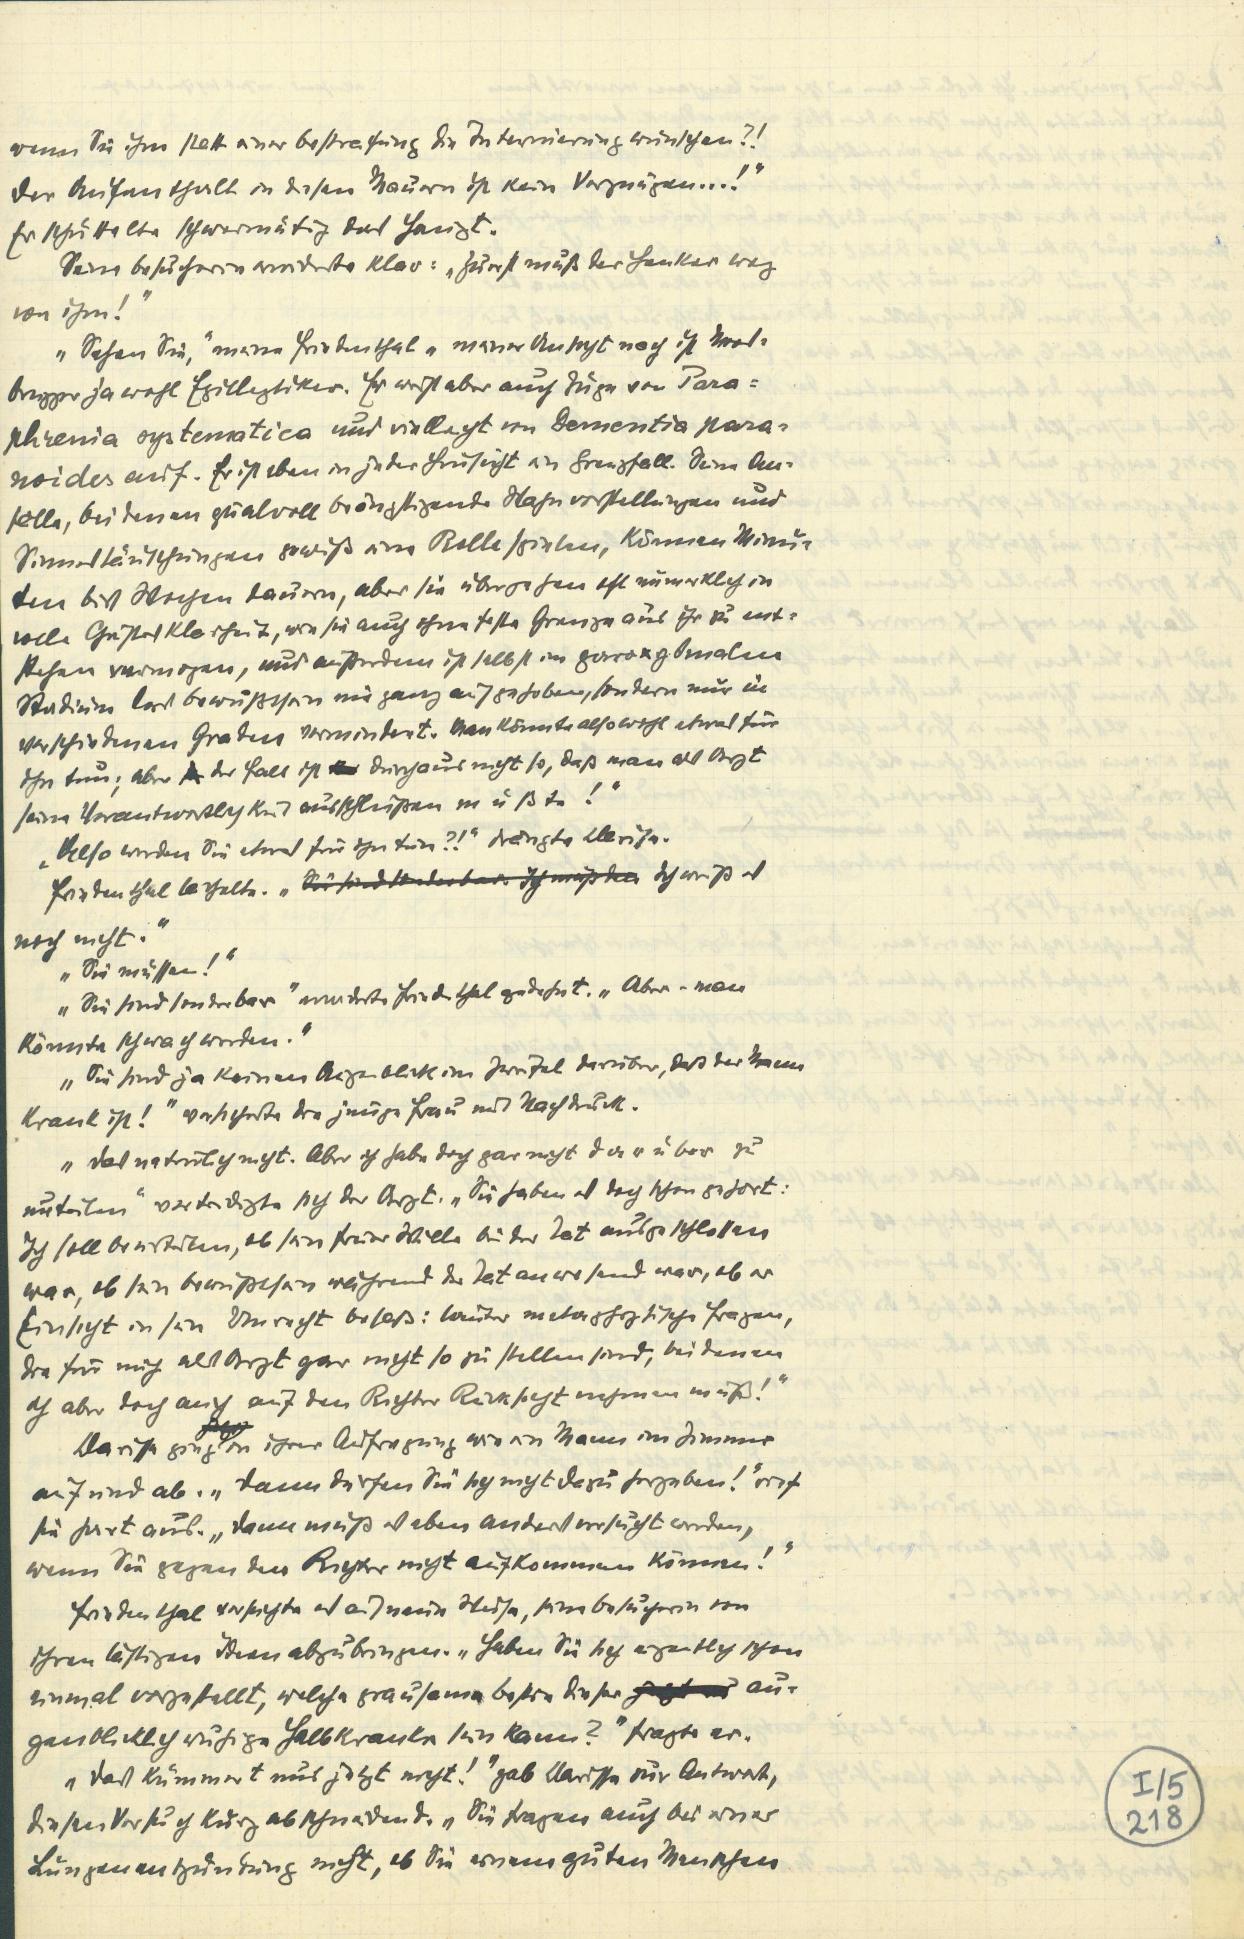 wenn Sie ihm statt einer Bestrafung die Internierung wünschen?!
Der Aufenthalt in diesen Mauern ist kein Vergnügen...!"
Er schüttelte schwermütig das Haupt.
Seine Besucherin erwiderte klar: „Zuerst muß der Henker weg
von ihm!"
„Sehen Sie," meinte Friedenthal „meiner Ansicht nach ist Moos-
brugger ja wohl Epilleptiker. Er weist aber auch Züge von Para=
phrenia systematica und vielleicht von Dementia para-
noides auf. Er ist eben in jeder Hinsicht ein Grenzfall. Seine An-
fälle, bei denen qualvoll beängstigende Wahnvorstellungen und
Sinnestäuschungen gewiß eine Rolle spielen, können Minu-
ten bis Wochen dauern, aber sie übergehen oft unmerklich in
volle Geistesklarheit, wie sie auch ohne feste Grenze aus ihr zu ent-
stehen vermögen, und außerdem ist selbst im paroxysmalen
Stadium das Bewußtsein nie ganz aufgehoben, sondern nur in
verschiedenen Graden vermindert. Man könnte also wohl etwas für
ihn tun; aber der Fall ist durchaus nicht so, daß man als Arzt
seine Verantwortlichkeit ausschließen müßte!"
„Also werden Sie etwas für ihn tun?!" drängte Clarisse.
Friedenthal lächelte. „Sie sind sonderbar. Ich muß den Ich weiß es
noch nicht."
„Sie müssen!"
„Sie sind sonderbar" erwiderte Friedenthal gedehnt. „Aber – man
könnte schwach werden."
„Sie sind ja keinen Augenblick im Zweifel darüber, daß der Mann
krank ist!" versicherte die junge Frau mit Nachdruck.
„Das natürlich nicht. Aber ich habe doch gar nicht darüber zu
urteilen" verteidigte sich der Arzt. „Sie haben es doch schon gehört:
Ich soll beurteilen, ob sein freier Wille bei der Tat ausgeschlossen
war, ob sein Bewußtsein während der Tat anwesend war, ob er
Einsicht in sein Unrecht besaß: lauter metaphysische Fragen,
die für mich als Arzt gar nicht so zu stellen sind, bei denen
ich aber doch auch auf den Richter Rücksicht nehmen muß!"
Clarisse ging in ihrer Aufregung wie ein Mann im Zimmer
auf und ab. „Dann dürfen Sie sich nicht dazu hergeben!" rief
sie hart aus. „Dann muß es eben anders versucht werden,
wenn Sie gegen den Richter nicht aufkommen können!"
Friedenthal versuchte es auf neue Weise, seine Besucherin von
ihren lästigen Ideen abzubringen. „Haben Sie sich eigentlich schon
einmal vorgestellt, welche grausame Bestie dieser au-
genblicklich ruhige Halbkranke sein kann?" fragte er.
„Das kümmert uns jetzt nicht!" gab Clarisse zur Antwort,
diesen Versuch kurz abschneidend. „Sie fragen auch bei einer
Lungenentzündung nicht, ob Sie einem guten Menschen
I/5
218